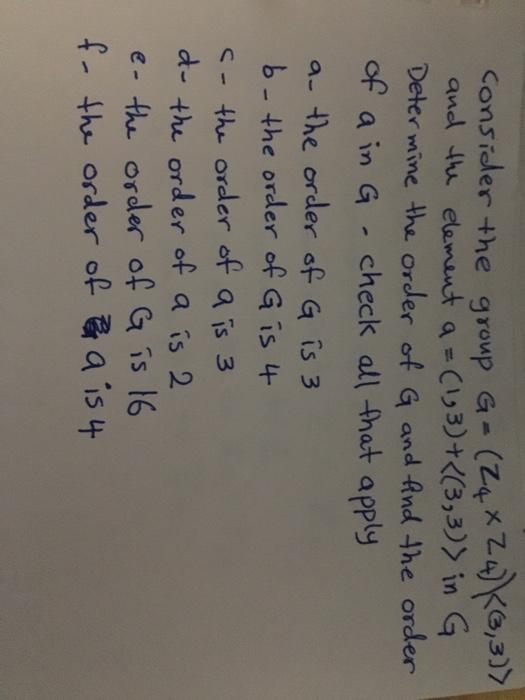 Consider the group G = (Z4 × Z4)\<(3,3)>
and the element a = (1,3)+<(3,3)> in G
Determine the order of G and find the order
of a in G - check all that apply
a- the order of G is 3
b- the order of G is 4
c- the order of a is 3
d- the order of a is 2
e- the order of G is 16
f- the order of a is 4